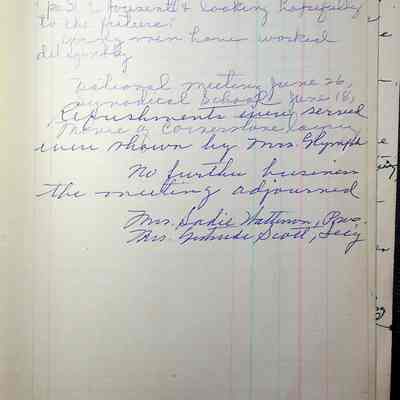 past, present & looking hopefully
to the future.
Young men have worked
diligently
National meeting June 26,
Periodical School June 18,
Refreshments were served
Movie of Cornerstone laying
were shown by Mrs. Glymph
No further business
the meeting adjourned
Mrs. Sadie Watterson, Pres.
Mrs. Gertrude Scott, Secy